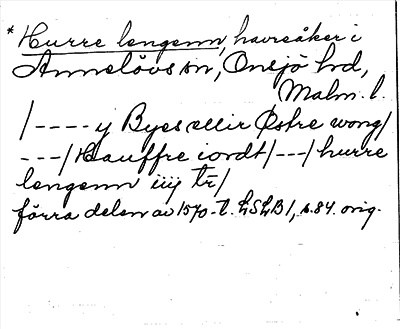 *Hurre lengenn, havreåker i
Annelövs sn, Onsjö hd,
Malm. l.
/---- y Byes ællir Østre wong/
---/ Hauffre iordt/---/ hurre
lengenn iiij tr/
förra delen av 1570-t. LSLB 1, s. 84. orig.